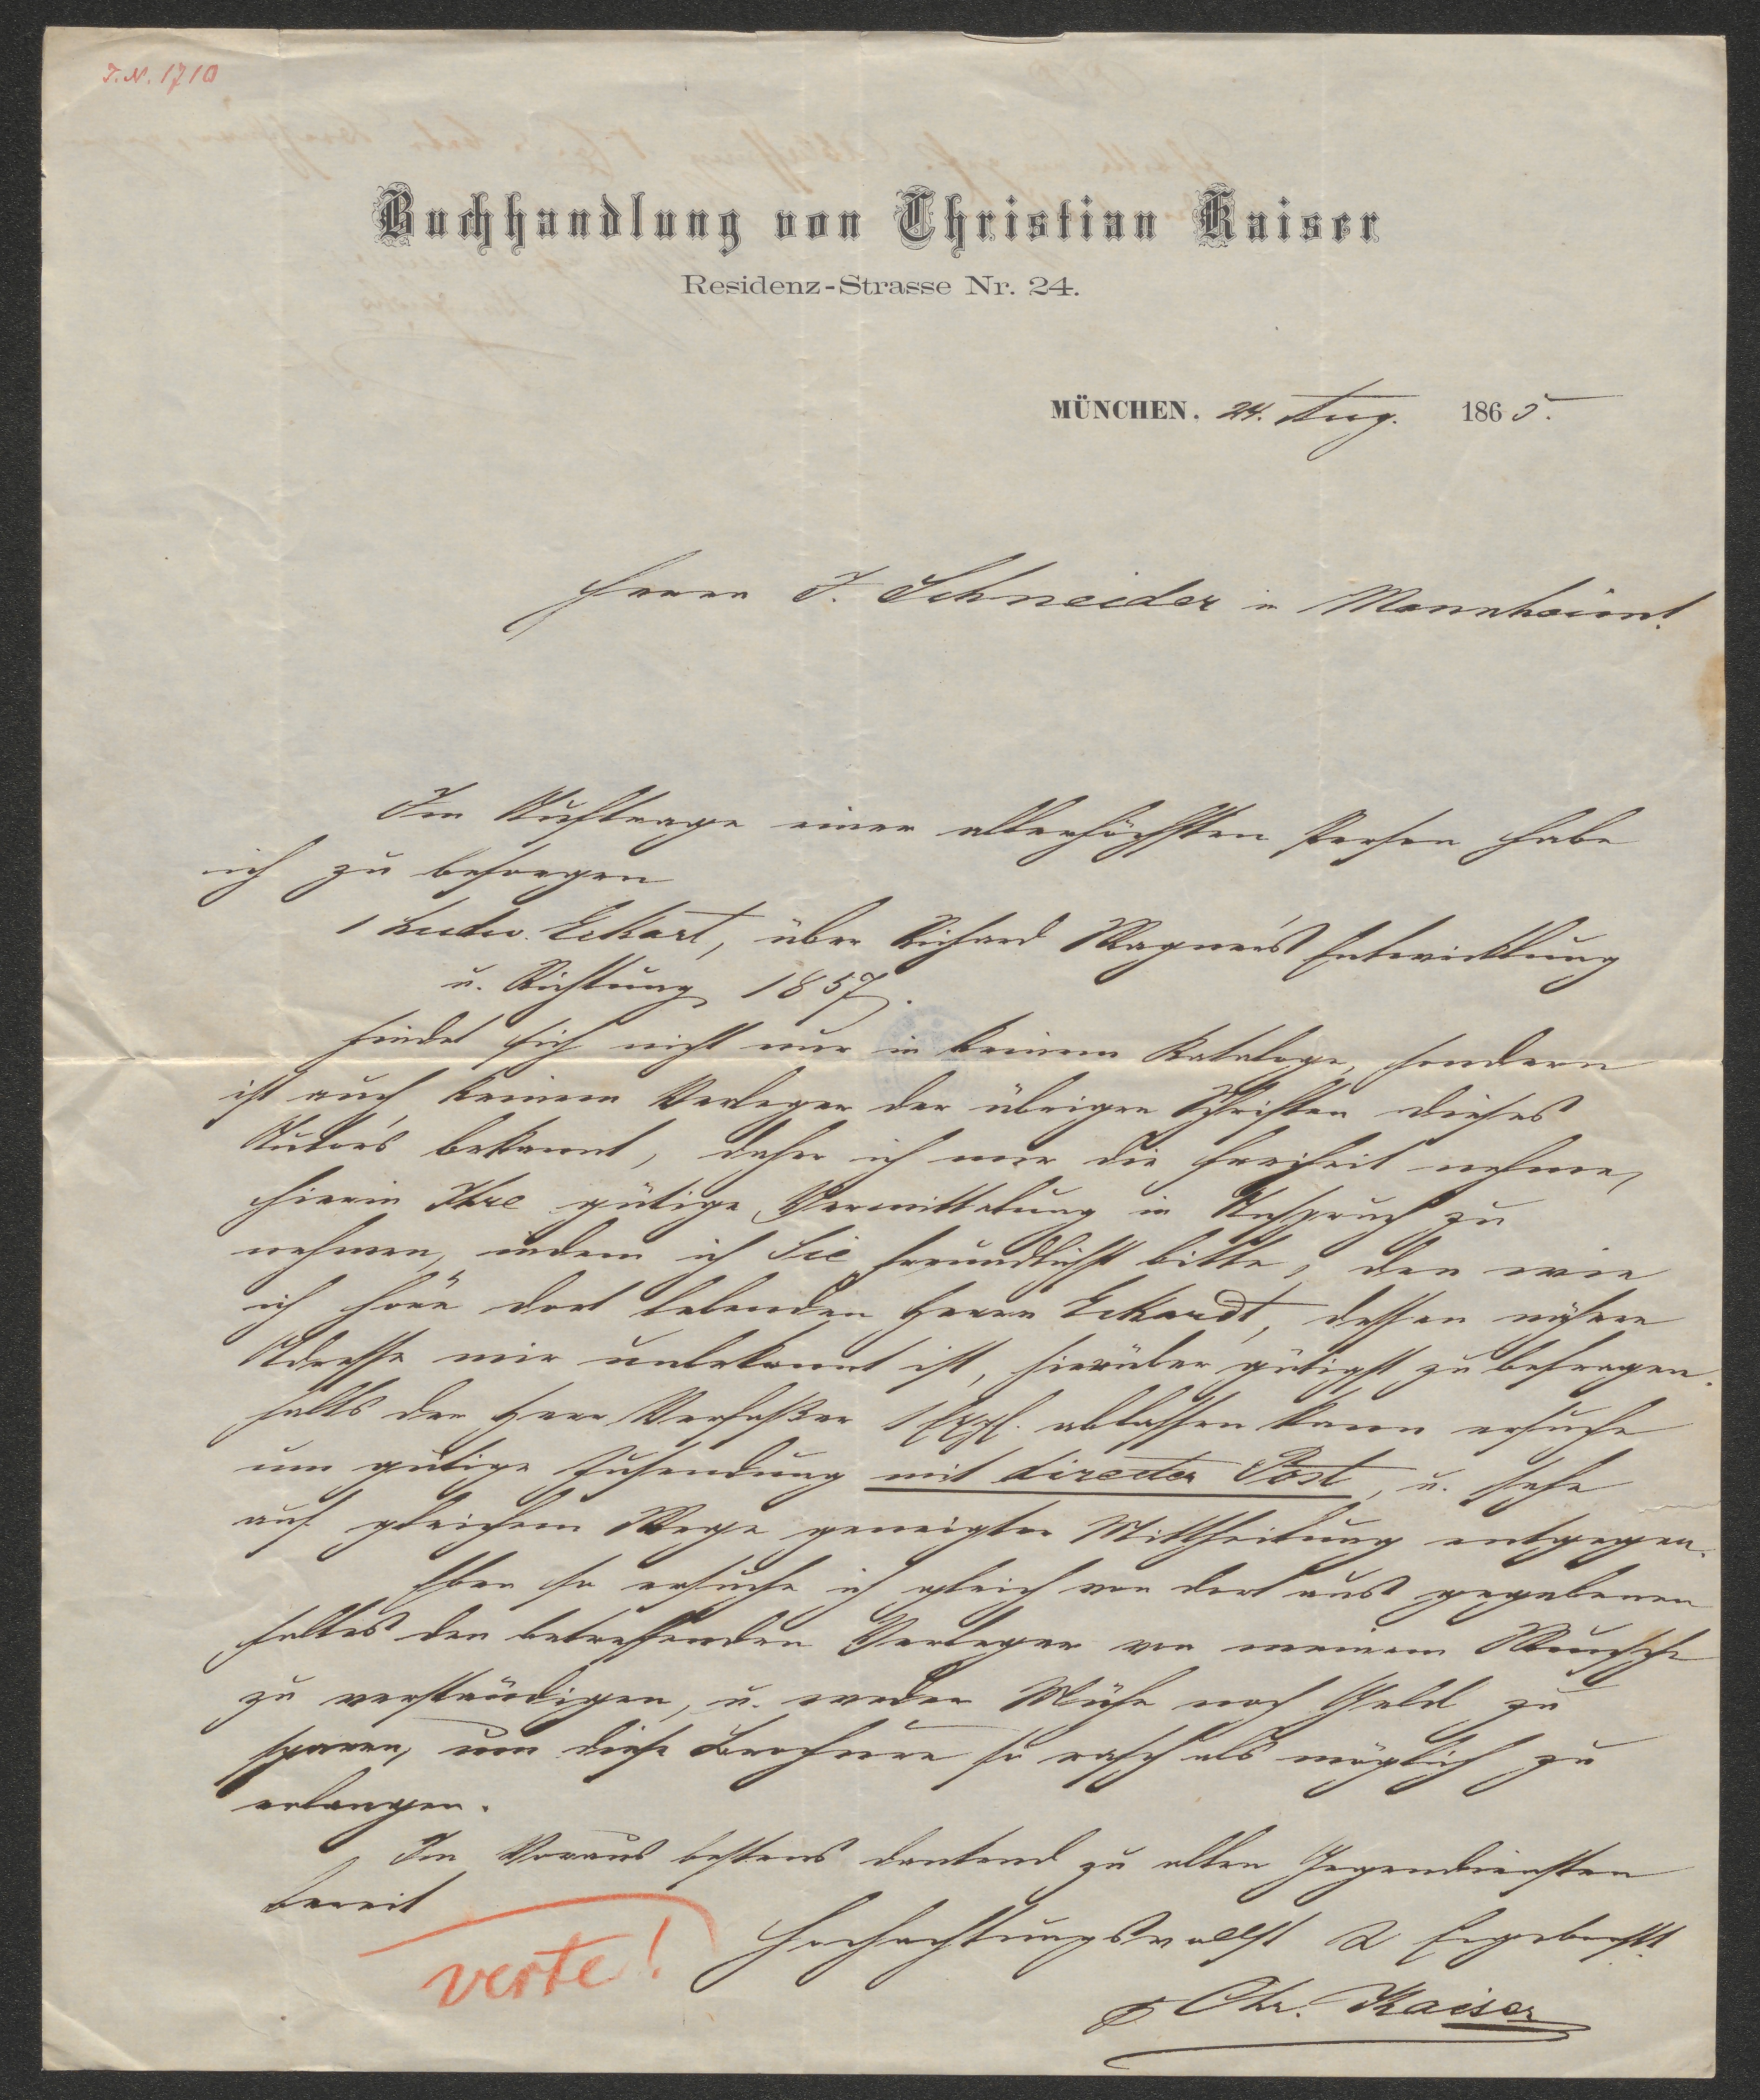 J. N. 1710
Buchhandlung von Christian Kaiser
Residenz-Strasse Nr. 24.
MÜNCHEN. 24. Aug. 1865.
Herrn J. Schneider in Mannheim!
Im Auftrage einer allerhöchsten Person habe
ich zu besorgen
1 Ludw. Eckart, über Richard Wagner's Entwicklung
u. Richtung 1857.
findet sich nicht nur in keinem Kataloge, sondern
ist auch keinem Verleger der übrigen Schriften dieses
Autors bekannt, daher ich mir die Freiheit nehme,
hierin Ihre gütige Vermittelung in Anspruch zu
nehmen, indem ich Sie freundlichst bitte, den wie
ich höre dort lebenden Herrn Eckardt, dessen nähere
Adresse mir unbekannt ist, hierüber gütigst zu befragen.
Falls der Herr Verfaßer 1 Expl. ablassen kann ersuche
um gütige Zusendung mit directer Post, u. sehe
auf gleichem Wege geneigter Mittheilung entgegen.
Eben so ersuche ich gleich von dort aus gegebenen
Falles den betreffenden Verleger von meinem Wunsche
zu verständigen, u. weder Mühe noch Geld zu
sparen, um diese Brochure so rasch als möglich zu
erlangen.
Im Voraus bestens dankend zu allen Gegendiensten
bereit
Hochachtungsvollst & Ergebenst
Chr. Kaiser
verte!